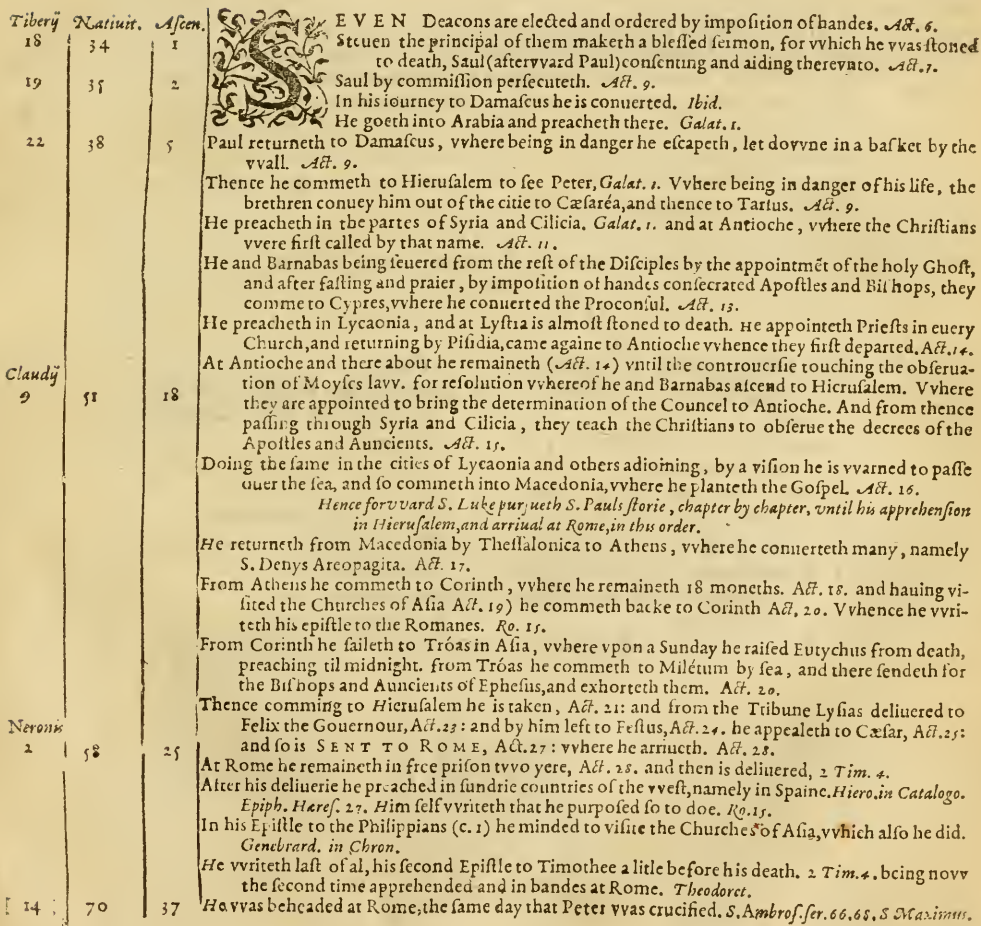 Tiberÿ Natiuit. Ascen. SEVEN Deacons are elected and ordered by imposition of handes. Act. 6.
18 34 1 Steuen the principal of them maketh a blessed sermon, for vvhich he vvas stoned
to death, Saul (aftervvard Paul) consenting and aiding therevnto. Act. 7.
19 35 2 Saul by commission persecuteth. Act. 9.
In his iourney to Damascus he is conuerted. Ibid.
He goeth into Arabia and preacheth there. Galat. 1.
22 38 5 Paul returneth to Damascus, vvhere being in danger he escapeth, let dovvne in a basket by the
vvall. Act. 9.
Thence he commeth to Hierusalem to see Peter, Galat. 1. Vvhere being in danger of his life, the
brethren conuey him out of the citie to Cæsaréa, and thence to Tarsus. Act. 9.
He preacheth in the partes of Syria and Cilicia. Galat. 1. and at Antioche, vvhere the Christians
vvere first called by that name. Act. 11.
He and Barnabas being seuered from the rest of the Disciples by the appointmēt of the holy Ghost,
and after fasting and praier, by imposition of handes consecrated Apostles and Bishops, they
comme to Cypres, vvhere he conuerted the Proconsul. Act. 13.
He preacheth in Lycaonia, and at Lystra is almost stoned to death. He appointeth Priests in euery
Church, and returning by Pisidia, came againe to Antioche vvhence they first departed. Act. 14.
Claudÿ At Antioche and there about he remaineth (Act. 14) vntil the controuersie touching the obserua-
9 51 18 tion of Moyses lavv. for resolution vvhereof he and Barnabas ascend to Hierusalem. Vvhere
they are appointed to bring the determination of the Councel to Antioche. And from thence
passing through Syria and Cilicia, they teach the Christians to obserue the decrees of the
Apostles and Auncients. Act. 15.
Doing the same in the cities of Lycaonia and others adioining, by a vision he is vvarned to passe
ouer the sea, and so commeth into Macedonia, vvhere he planteth the Gospel. Act. 16.
Hence forvvard S. Luke pursueth S. Pauls storie, chapter by chapter, vntil his apprehension
in Hierusalem, and arriual at Rome, in this order.
He returneth from Macedonia by Thessalonica to Athens, vvhere he conuerteth many, namely
S. Denys Areopagita. Act. 17.
From Athens he commeth to Corinth, vvhere he remaineth 18 moneths. Act. 18. and hauing vi-
sited the Churches of Asia Act. 19) he commeth backe to Corinth Act, 20. Vvhence he vvri-
teth his epistle to the Romanes. Ro. 15.
From Corinth he saileth to Tróas in Asia, vvhere vpon a Sunday he raised Eutychus from death,
preaching til midnight. from Tróas he commeth to Milétum by sea, and there sendeth for
the Bishops and Auncients of Ephesus, and exhorteth them. Act. 20.
Thence comming to Hierusalem he is taken, Act. 21: and from the Tribune Lysias deliuered to
Neronis Felix the Gouernour, Act. 23: and by him left to Festus, Act. 24. he appealeth to Cæsar, Act. 25:
2 58 25 and so is SENT TO ROME, Act. 27: vvhere he arriueth. Act. 28.
At Rome he remaineth in free prison tvvo yere, Act. 28. and then is deliuered, 2 Tim. 4.
After his deliuerie he preached in sundrie countries of the vvest, namely in Spaine. Hiero. in Catalogo.
Epiph. Hæres. 27. Him self vvriteth that he purposed so to doe. Ro. 15.
In his Epistle to the Philippians (c. 1) he minded to visite the Churches of Asia, vvhich also he did.
Genebrard. in Chron.
He vvriteth last of al, his second Epistle to Timothee a litle before his death. 2 Tim. 4. being novv
the second time apprehended and in bandes at Rome. Theodoret.
[ 14 70 37 He vvas beheaded at Rome, the same day that Peter vvas crucified. S. Ambros. ser. 66. 68. S Maximus.